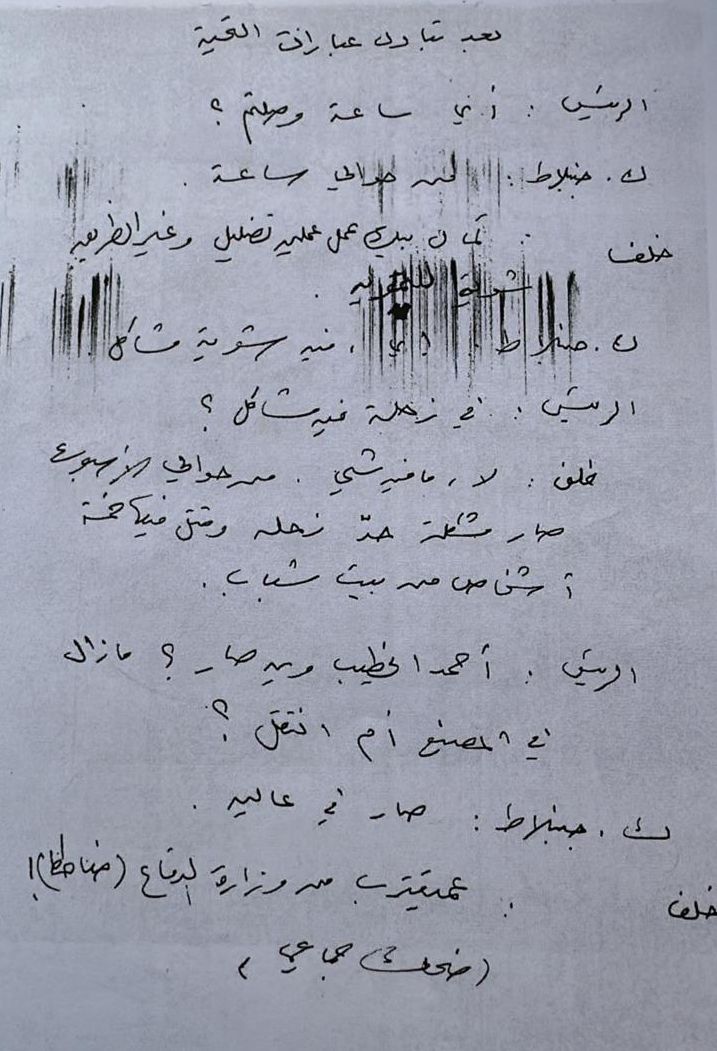 بعد تبادل عبارات التحية
الرئيس : أي ساعة وصلتم ؟
ك. جنبلاط : من حوالي ساعة .
خلف : كمان بيدي عمل عملية تضليل وغير الطريق
شوية للتمويه .
ك. جنبلاط : إي ، فيه شوية مشاكل .
الرئيس : في زحلة فيه مشاكل ؟
خلف : لا ، ما فيه شي . من حوالي الأسبوع
صار مشكلة حدّ زحله وقتل فيها خمسة
أشخاص من بيت شباب .
الرئيس : أحمد الخطيب وين صار ؟ مازال
في المصنع أم انتقل ؟
ك. جنبلاط : صار في عاليه .
خلف : عميقترب من وزارة الدفاع (ضاحكا)!
(ضحك جماعي)